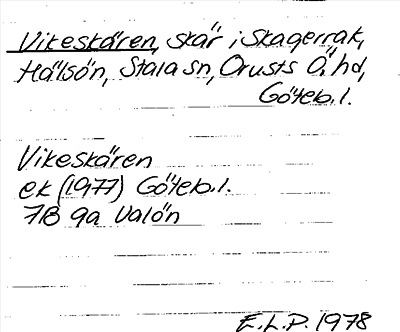 Vikeskären, skär i Skagerrak,
Hälsön, Stala sn, Orusts Ö. hd,
Göteb. l.
Vikeskären
ek (1977) Göteb. l.
7B 9a Valön
E.L.P. 1978